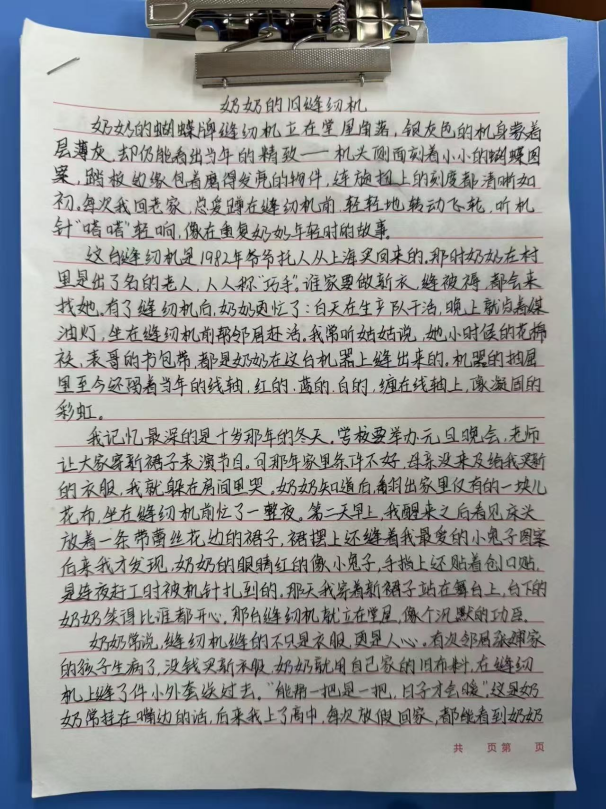 奶奶的旧缝纫机
奶奶的蝴蝶牌缝纫机立在堂屋角落，银灰色的机身蒙着
层薄灰，却仍能看出当年的精致——机头侧面刻着小小的蝴蝶图
案，踏板边缘包着磨得发亮的物件，连旋扭上的刻度都清晰如
初。每次我回老家，总爱蹲在缝纫机前，轻轻地转动飞轮，听机
针“嗒嗒”轻响，像在重复奶奶年轻时的故事。
这台缝纫机是1982年爷爷托人从上海买回来的，那时奶奶在村
里是出了名的老人，人人称“巧手”。谁家要做新衣，缝被褥，都会来
找她。有了缝纫机后，奶奶更忙了：白天在生产队干活，晚上就点着煤
油灯，坐在缝纫机前帮邻居赶活。我常听姑姑说，她小时候的花棉
袄，表哥的书包带，都是奶奶在这台机器上缝出来的。机器的抽屉
里至今还留着当年的线轴，红的、蓝的、白的，缠在线轴上，像凝固的
彩虹。
我记忆最深的是十岁那年的冬天。学校要举办元旦晚会，老师
让大家穿新裙子表演节目。可那年家里条件不好，母亲没来及给我买新
的衣服，我就躲在房间里哭。奶奶知道后，翻出家里仅有的一块儿
花布，坐在缝纫机前忙了一整夜。第二天早上，我醒来之后看见床头
放着一条带蕾丝花边的裙子，裙摆上还缝着我最爱的小兔子图案
后来我才发现，奶奶的眼睛红的像小兔子，手指上还贴着创口贴，
是连夜赶工时被机针扎到的。那天我穿着新裙子站在舞台上，台下的
奶奶笑得比谁都开心，那台缝纫机就立在堂屋，像个沉默的功臣。
奶奶常说，缝纫机缝的不只是衣服，更是人心。有次邻居张婶家
的孩子生病了，没钱买新衣服，奶奶就用自己家的旧布料，在缝纫
机上缝了件小外套送过去。“能帮一把是一把，日子才会暖”，这是奶
奶常挂在嘴边的话，后来我上了高中，每次放假回家，都能看到奶奶
共 页 第 页